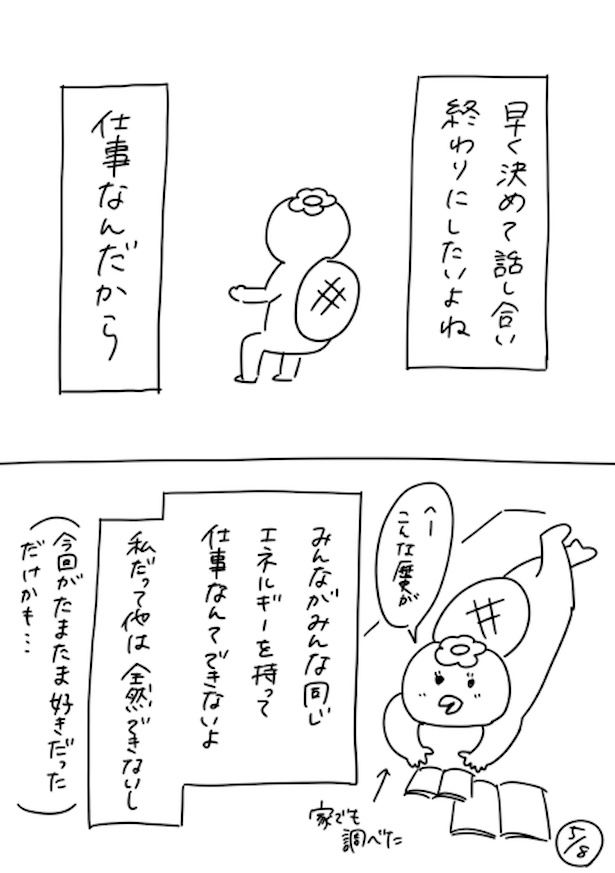 早く決めて話し合い
終わりにしたいよね
仕事なんだから
へー
こんな歴史が
みんながみんな同じ
エネルギーを持って
仕事なんてできないよ
私だって他は全然できないし
(今回がたまたま好きだった
だけかも…)
家でも
調べた
5/8